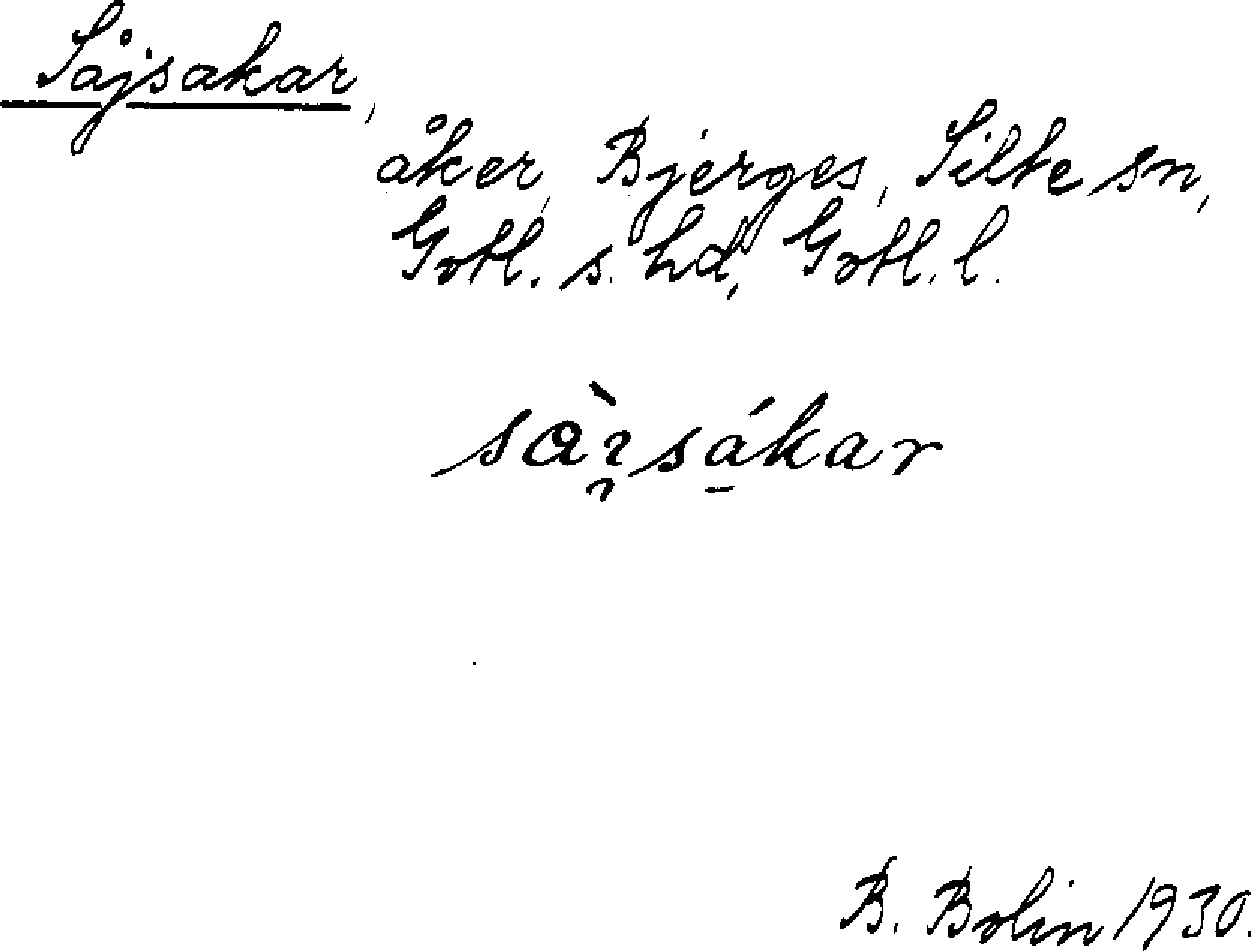 Såjsakar,
åker, Bjerges, Silte sn,
Gotl. s. hd, Gotl. l.
B. Bolin 1930.